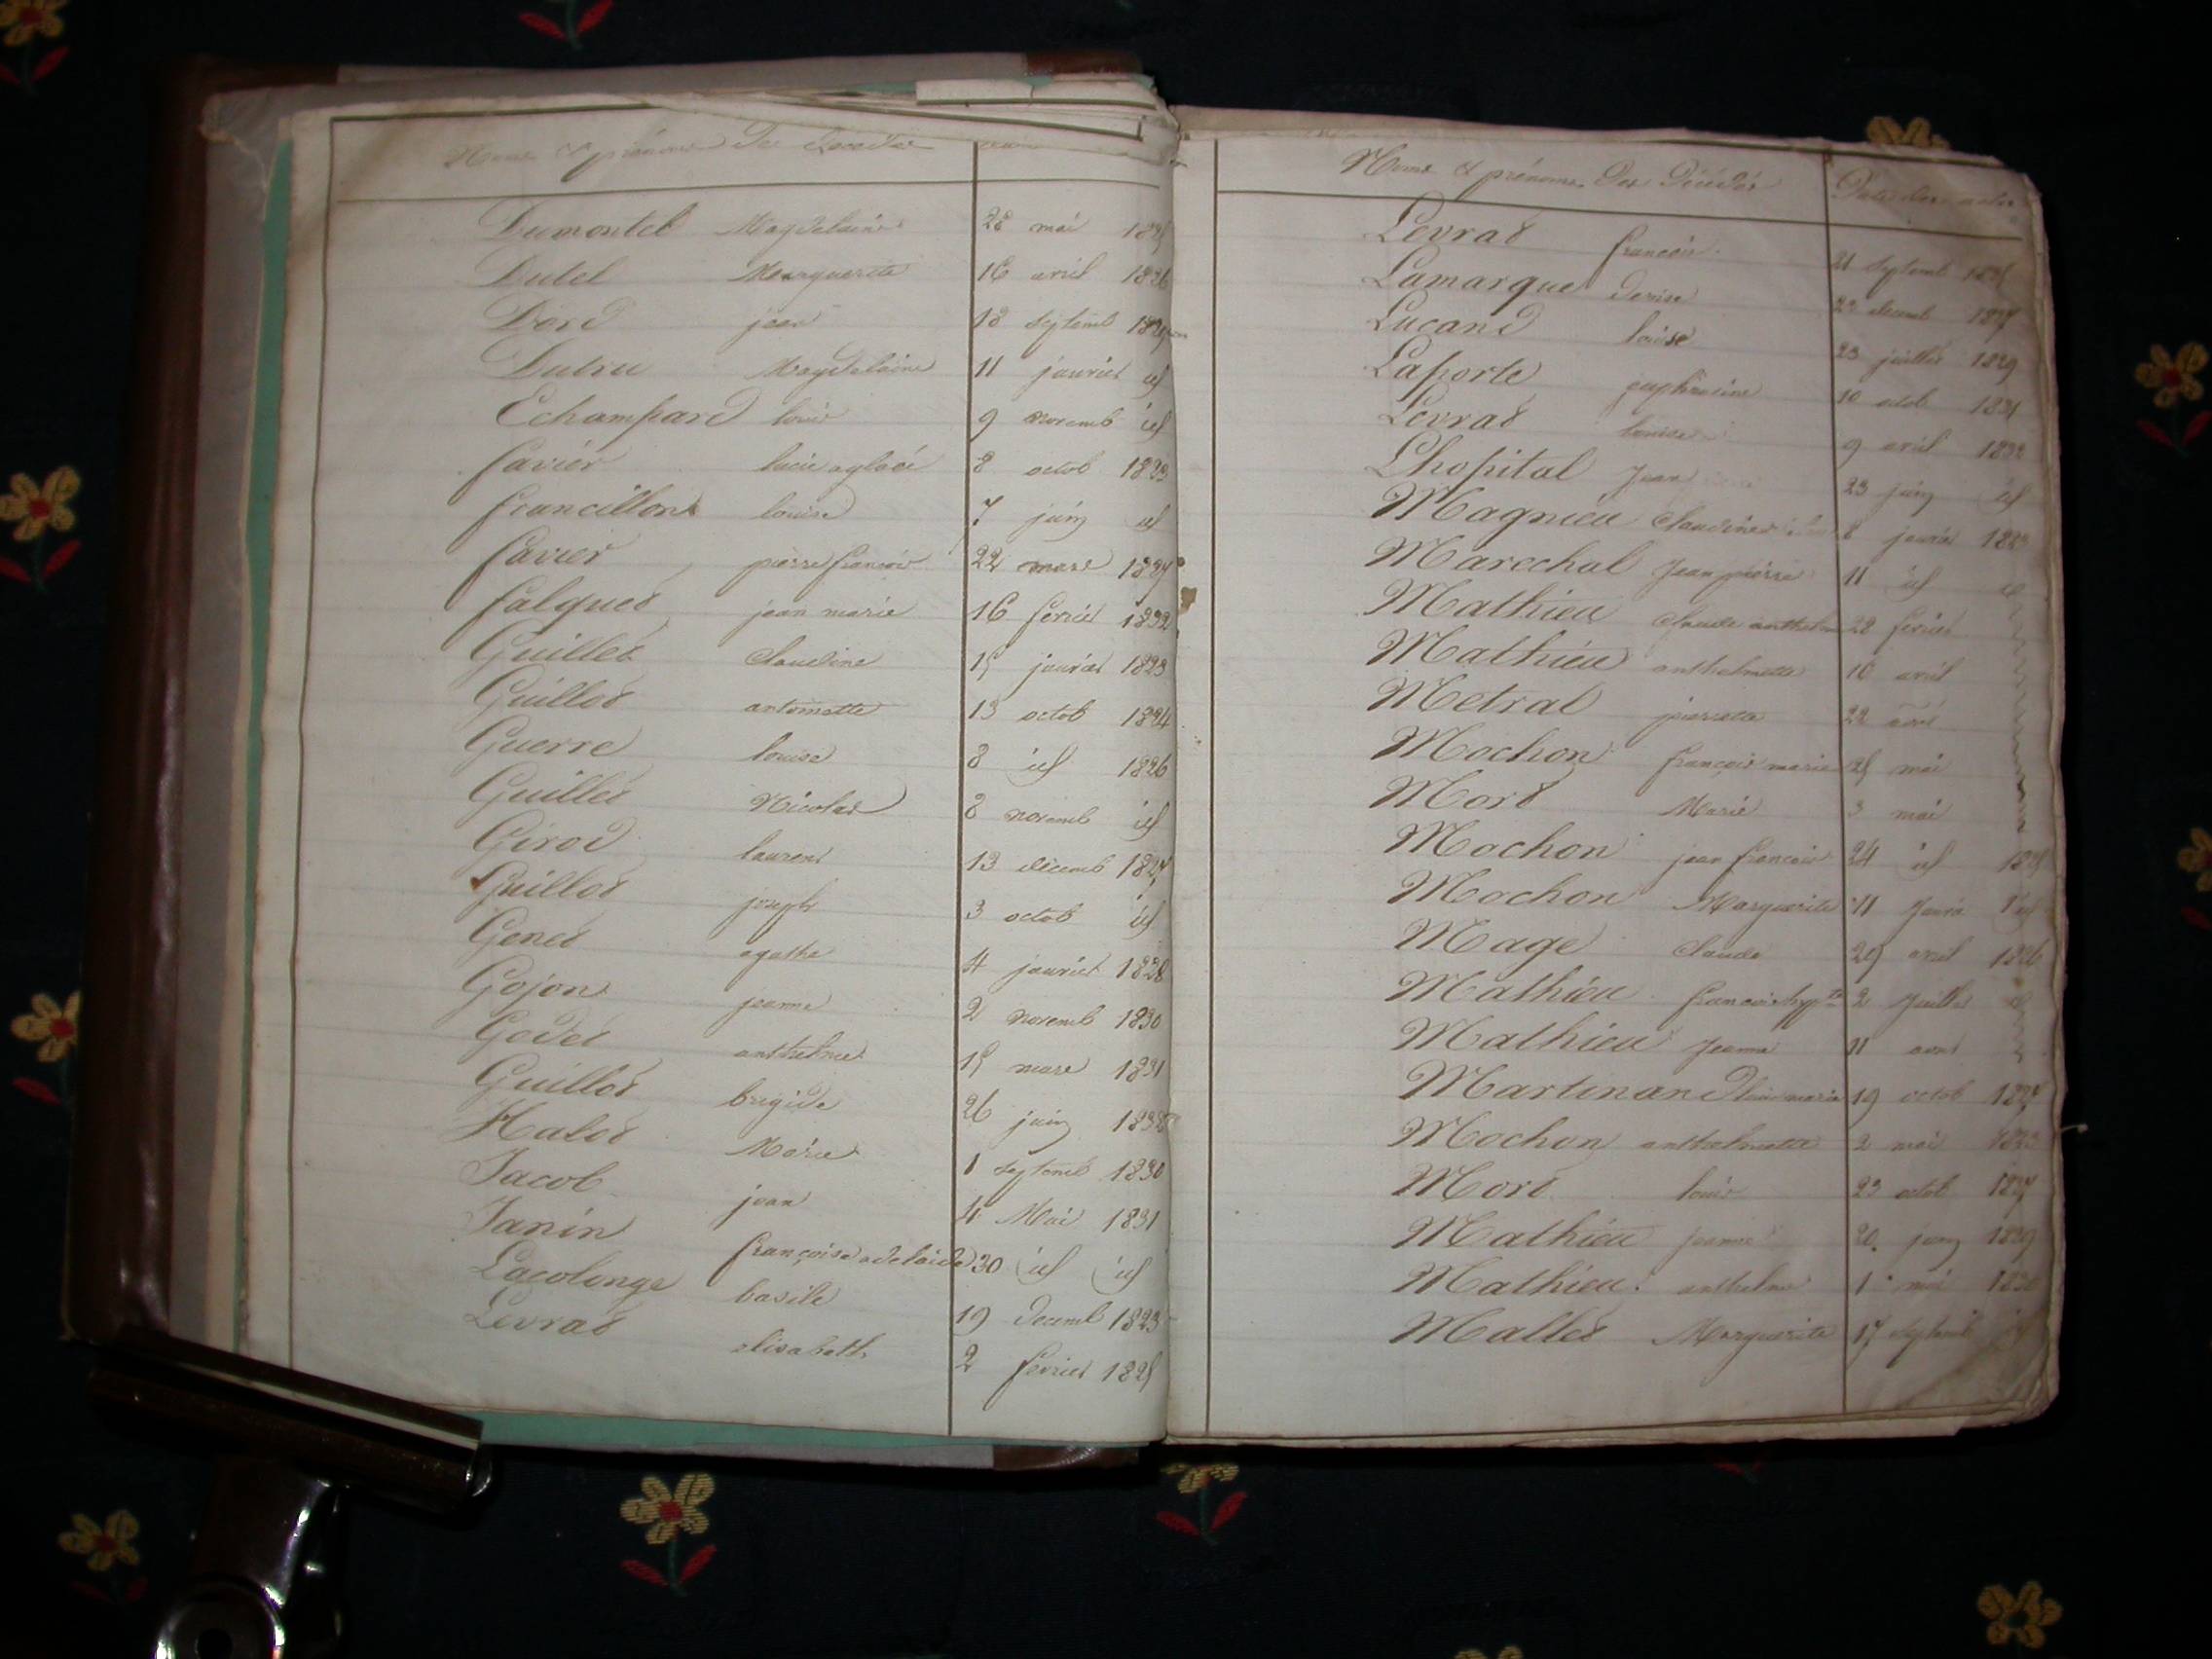 Noms & prénoms des Décédés
Dumontel Magdelaine 28 mai
Dutel Marguerite 16 avril 1826
Dord jean 18 septemb
Dutru Magdelaine 11 janvier id
Echampard louis 9 novemb id
favier lucie aglaé 8 octob 1823
francillon louise 7 juin id
favier pierre françois 22 mars 1827
falques jean marie 16 fevrier 1832
Guillet Claudine 15 janvier 1823
Guillot antoinette 13 octob 1824
Guerre louise 8 id 1826
Guillot Nicolas 8 novemb id
Girod laurent 13 décemb 1827
Guillot joseph 3 octob id
Genet agathe 4 janvier 1828
Gojon jeanne 2 novemb 1830
Godet anthelme 15 mars 1831
Guillot brigide 26 juin 1832
Halot Marie 1 septemb 1830
Jacob jean 4 Mai 1831
Janin françoise adelaide 30 id id
Lacolonge basile 19 Decemb 1823
Levrat elisabeth 2 fevrier 1825
Noms & prénoms des Décédés Dates des actes
Levrat françois 21 septemb
Lamarque denise decemb 1827
Lucand louise 23 juillet 1829
Laporte 10 octob 1831
Levrat louise 9 avril 1832
Lhopital Jean 23 juin id
Magnieu Claudine 8 janvier 1823
Marechal Jean pierre 11 id
Mathieu Claude anthelme 28 fevrier
Mathieu anthelmette 10 avril
Metral pierrette 22 avril
Mochon françois marie 25 mai
Mort Marie 3 mai
Mochon jean françois 24 id 1825
Mochon Marguerite 11 Janvr
Mage Claude 29 avril 1826
Mathieu françois hypte 2 Juillet
Mathieu Jeanne 11 aout
Martinand marie 19 octob 1827
Mochon anthelmette 2 mai
Mort louis 23 octob 1827
Mathieu jeanne 20 juin 1829
Mathieu anthelme 1 mai
Mallet Marguerite 17 septemb